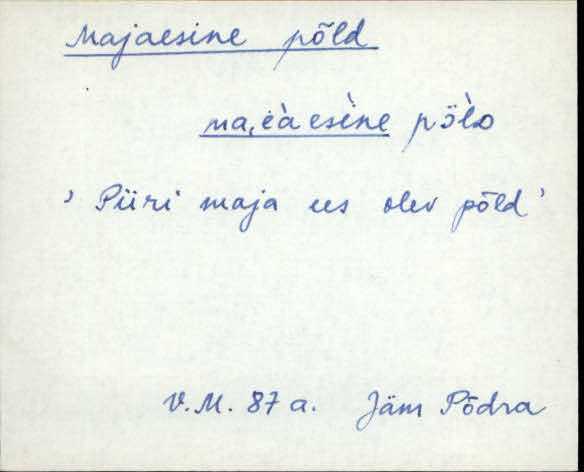 Majaesine põld
ma,ėàesène pö̀lᴅ
' Piiri maja ees olev põld '
V.M. 87 a. Jäm Põdra